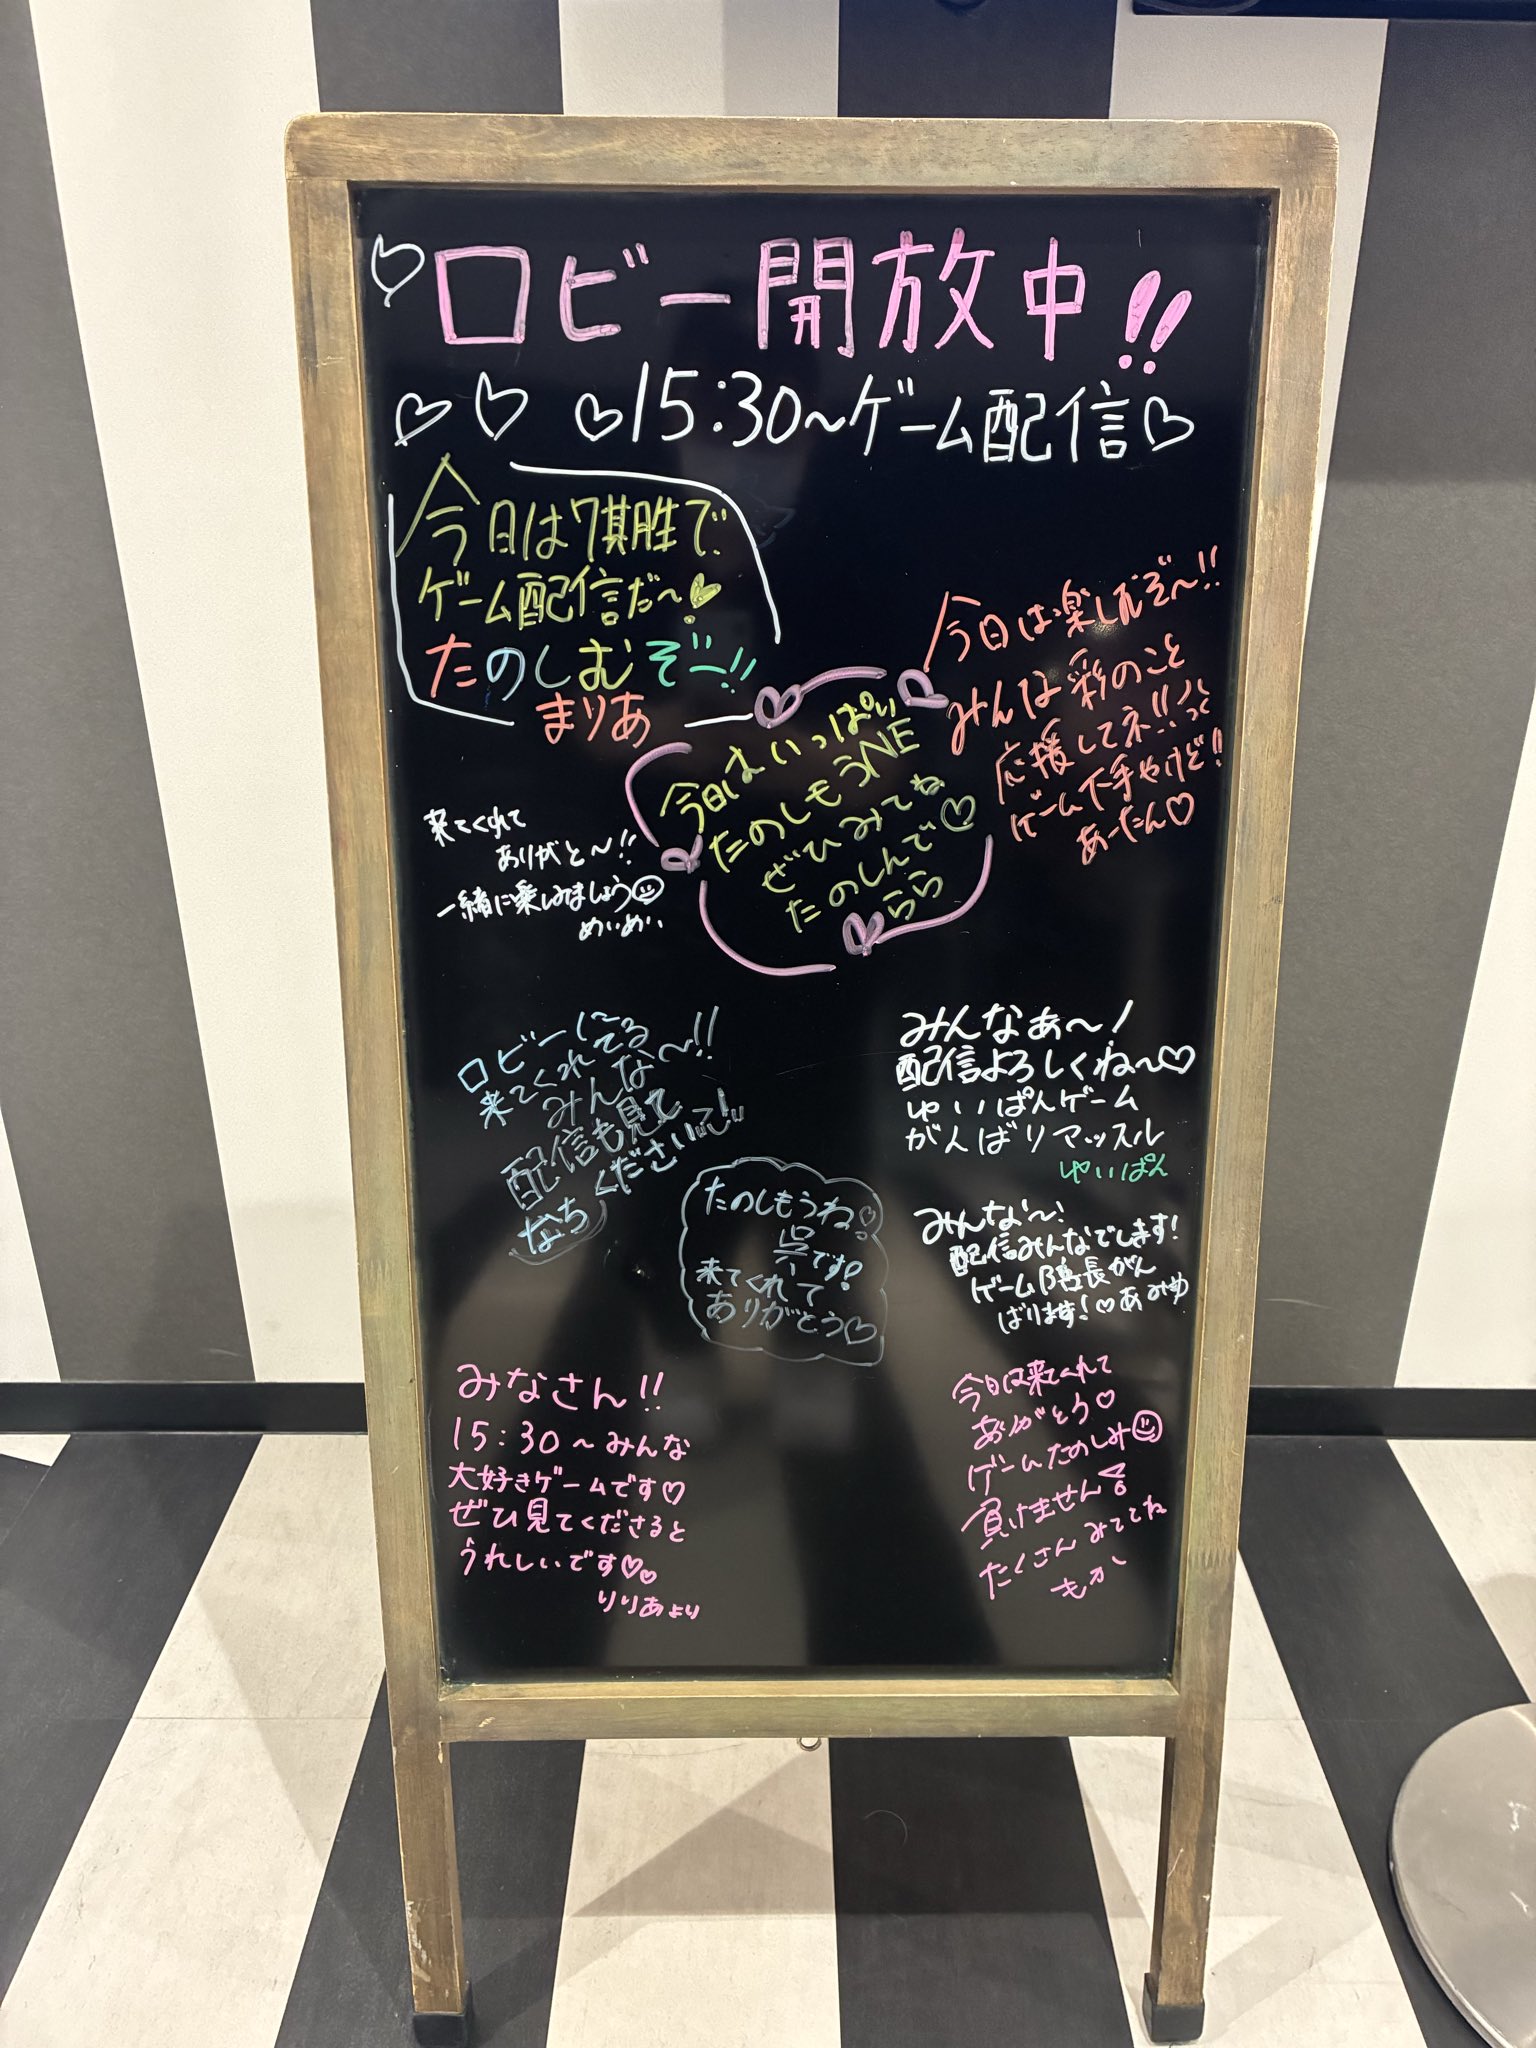 ロビー開放中!!
15:30〜ゲーム配信
今日は7期生で
ゲーム配信だ〜!
たのしむぞー!!
まりあ
今日は楽しむぞ〜!!
みんな彩のこと
応援してネ!!
ゲーム下手やけど!
あーたん♡
今日はいっぱい
たのしもうNE
ぜひみてね
たのしんで♡
らら
来てくれて
ありがと〜!!
一緒に楽しみましょう
めいめい
ロビーに
来てくれてる
みんな〜!!
配信も見て
くださいって!!
なち
みんなぁ〜!
配信よろしくね〜♡
ゆいぱんゲーム
がんばりマッスル
ゆいぱん
たのしもうね!
呉です!
来てくれて
ありがとう♡
みんな〜!
配信みんなでします!
ゲーム隊長がん
ばります!♡あみゆ
みなさん!!
15:30〜みんな
大好きゲームです♡
ぜひ見てくださると
うれしいです♡♡
りりあより
今日は来てくれて
ありがとう♡
ゲームたのしみ
負けません
たくさんみててね
もか